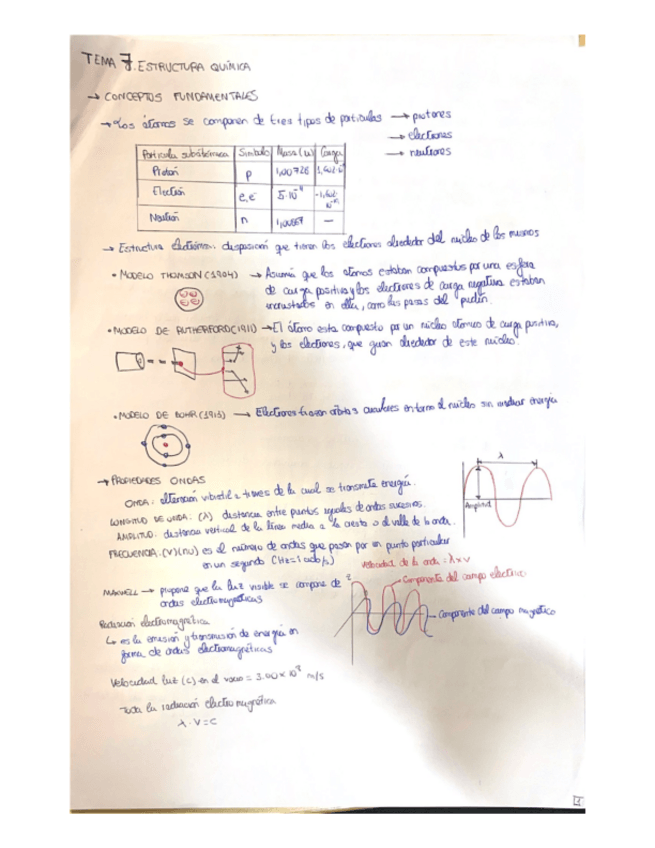 TEMA 7. ESTRUCTURA QUÍMICA
→ CONCEPTOS FUNDAMENTALES
→ Los átomos se componen de tres tipos de partículas → protones
→ electrones
→ neutrones
Partícula subatómica Símbolo Masa (u) Carga
Protón p 1,00728
Electrón e, e⁻ 5·10⁻⁴
Neutrón n —
→ Estructura electrónica: disposición que tienen los electrones alrededor del núcleo de los mismos
• MODELO THOMSON (1904) → Asumía que los átomos estaban compuestos por una esfera
de carga positiva y los electrones de carga negativa estaban
incrustados en ella, como las pasas del pudin.
• MODELO DE RUTHERFORD (1911) → El átomo esta compuesto por un núcleo atómico de carga positiva,
y los electrones, que giran alrededor de este núcleo.
• MODELO DE BOHR (1913) → Electrones trazan órbitas circulares entorno al núcleo sin irradiar energía
→ PROPIEDADES ONDAS
ONDA: alteración vibratil a traves de la cual se transmite energía.
LONGITUD DE ONDA: (λ) distancia entre puntos iguales de ondas sucesivas.
AMPLITUD: distancia vertical de la línea media a la cresta o al valle de la onda.
λ
Amplitud
FRECUENCIA: (ν) (nu) es el número de ondas que pasan por un punto particular
en un segundo (Hz = 1 ciclo/s)
Velocidad de la onda = λ x ν
MAXWELL → propone que la luz visible se compone de
ondas electromagnéticas
z
Componente del campo eléctrico
Componente del campo magnético
Radiación electromagnética
↳ es la emisión y transmisión de energía en
forma de ondas electromagnéticas
Velocidad luz (c) en el vacio = 3.00 x 10⁸ m/s
Toda la radiación electromagnética
λ · ν = c
1